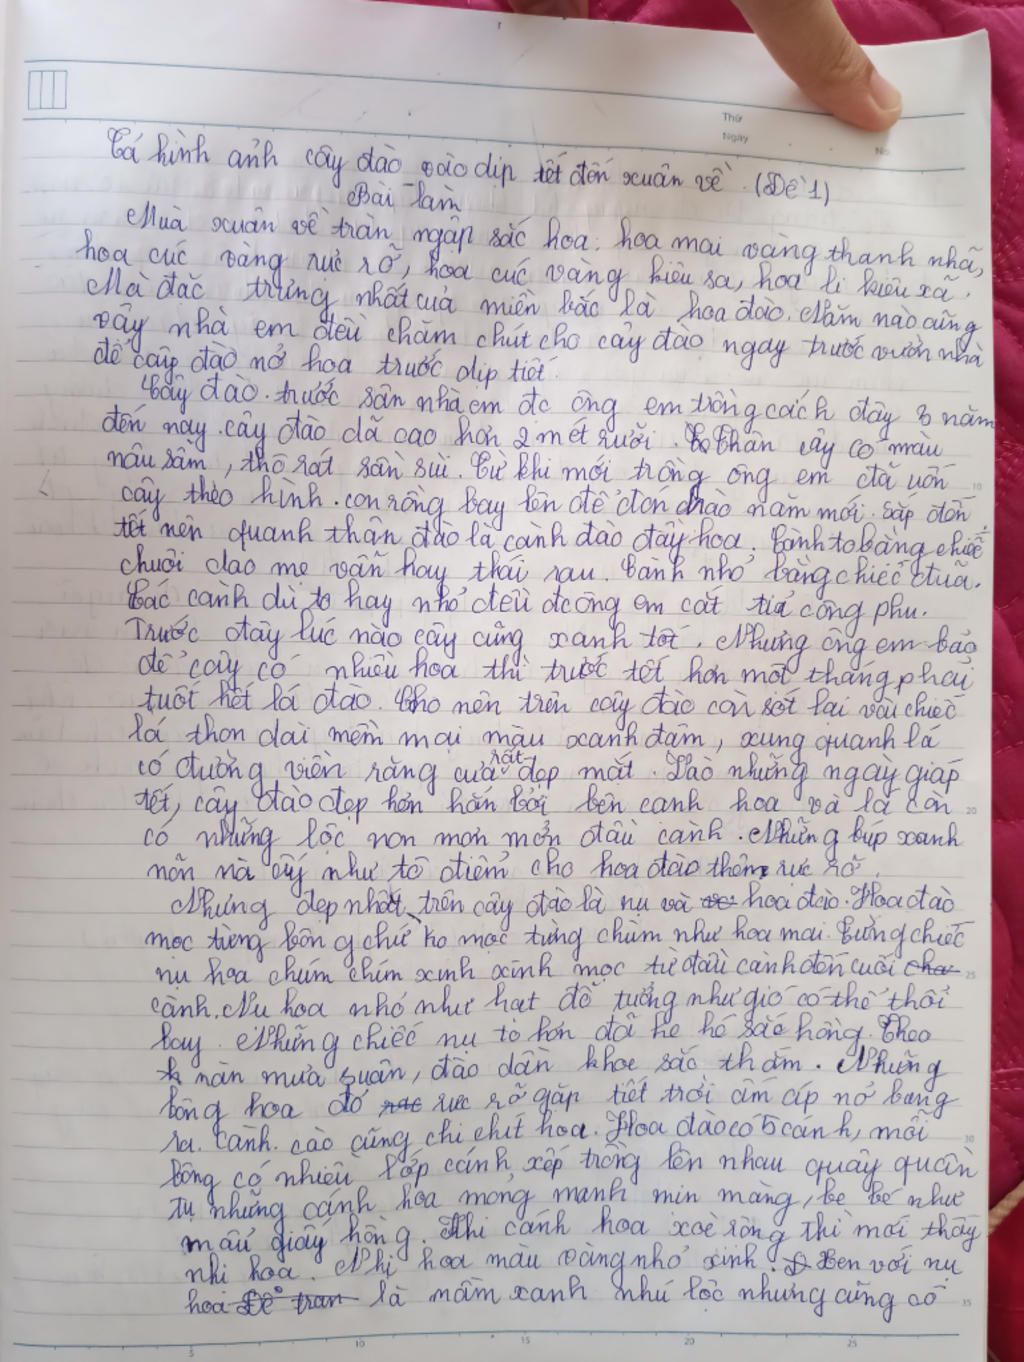 Thứ
Ngày
No
Tả hình ảnh cây đào vào dịp tết đến xuân về. (Đề 1)
Bài làm
Mùa xuân về tràn ngập sắc hoa: hoa mai vàng thanh nhã,
hoa cúc vàng rực rỡ, hoa cúc vàng kiêu sa, hoa li kiêu xã.
Mà đặc trưng nhất của miền bắc là hoa đào. Năm nào cũng
vậy nhà em đều chăm chút cho cây đào ngay trước vườn nhà
để cây đào nở hoa trước dịp tiết.
Cây đào trước sân nhà em đc ông em trồng cách đây 3 năm
đến nay cây đào đã cao hơn 2 mét rưỡi. Thân cây có màu
nâu sẫm, thô ráp sần sùi. Từ khi mới trồng ông em đã uốn
cây theo hình con rồng bay lên để đón chào năm mới. Sắp đến
tết nên quanh thân đào là cành đào đầy hoa. Cành to bằng chiếc
chuôi dao mẹ vẫn hay thái rau. Cành nhỏ bằng chiếc đũa.
Các cành dù to hay nhỏ đều đc ông em cắt tỉa công phu.
Trước đây lúc nào cây cũng xanh tốt. Nhưng ông em bảo
để cây có nhiều hoa thì trước tết hơn một tháng phải
tuốt hết lá đào. Cho nên trên cây đào còn sót lại vài chiếc
lá thon dài mềm mại màu xanh đậm, xung quanh lá
có đường viền răng cưa rất đẹp mắt. Vào những ngày giáp
tết, cây đào đẹp hơn hẳn bởi bên cạnh hoa và lá còn
có những lộc non mơn mởn đầu cành. Những búp xanh
nõn nà ấy như tô điểm cho hoa đào thêm rực rỡ.
Nhưng đẹp nhất trên cây đào là nụ và hoa đào. Hoa đào
mọc từng bông chứ ko mọc từng chùm như hoa mai. Từng chiếc
nụ hoa chúm chím xinh xinh mọc từ đầu cành đến cuối
cành. Nụ hoa nhỏ như hạt đỗ tưởng như gió có thể thổi
bay. Những chiếc nụ to hơn đã hé hé sắc hồng. Theo
màn mưa xuân, đào dần khoe sắc thắm. Những
bông hoa đỏ rực rỡ gặp tiết trời ấm áp nở bung
ra. Cành cao cũng chi chít hoa. Hoa đào có 5 cánh, mỗi
bông có nhiều lớp cánh xếp trồng lên nhau quây quần
tụ những cánh hoa mỏng manh mịn màng, be bé như
mẩu giấy hồng. Khi cánh hoa xoè rộng thì mới thấy
nhị hoa. Nhị hoa màu vàng nhỏ xinh. Xen với nụ
hoa là mầm xanh nhú lộc nhưng cũng có
5 10 15 20 25
10
20
25
30
35